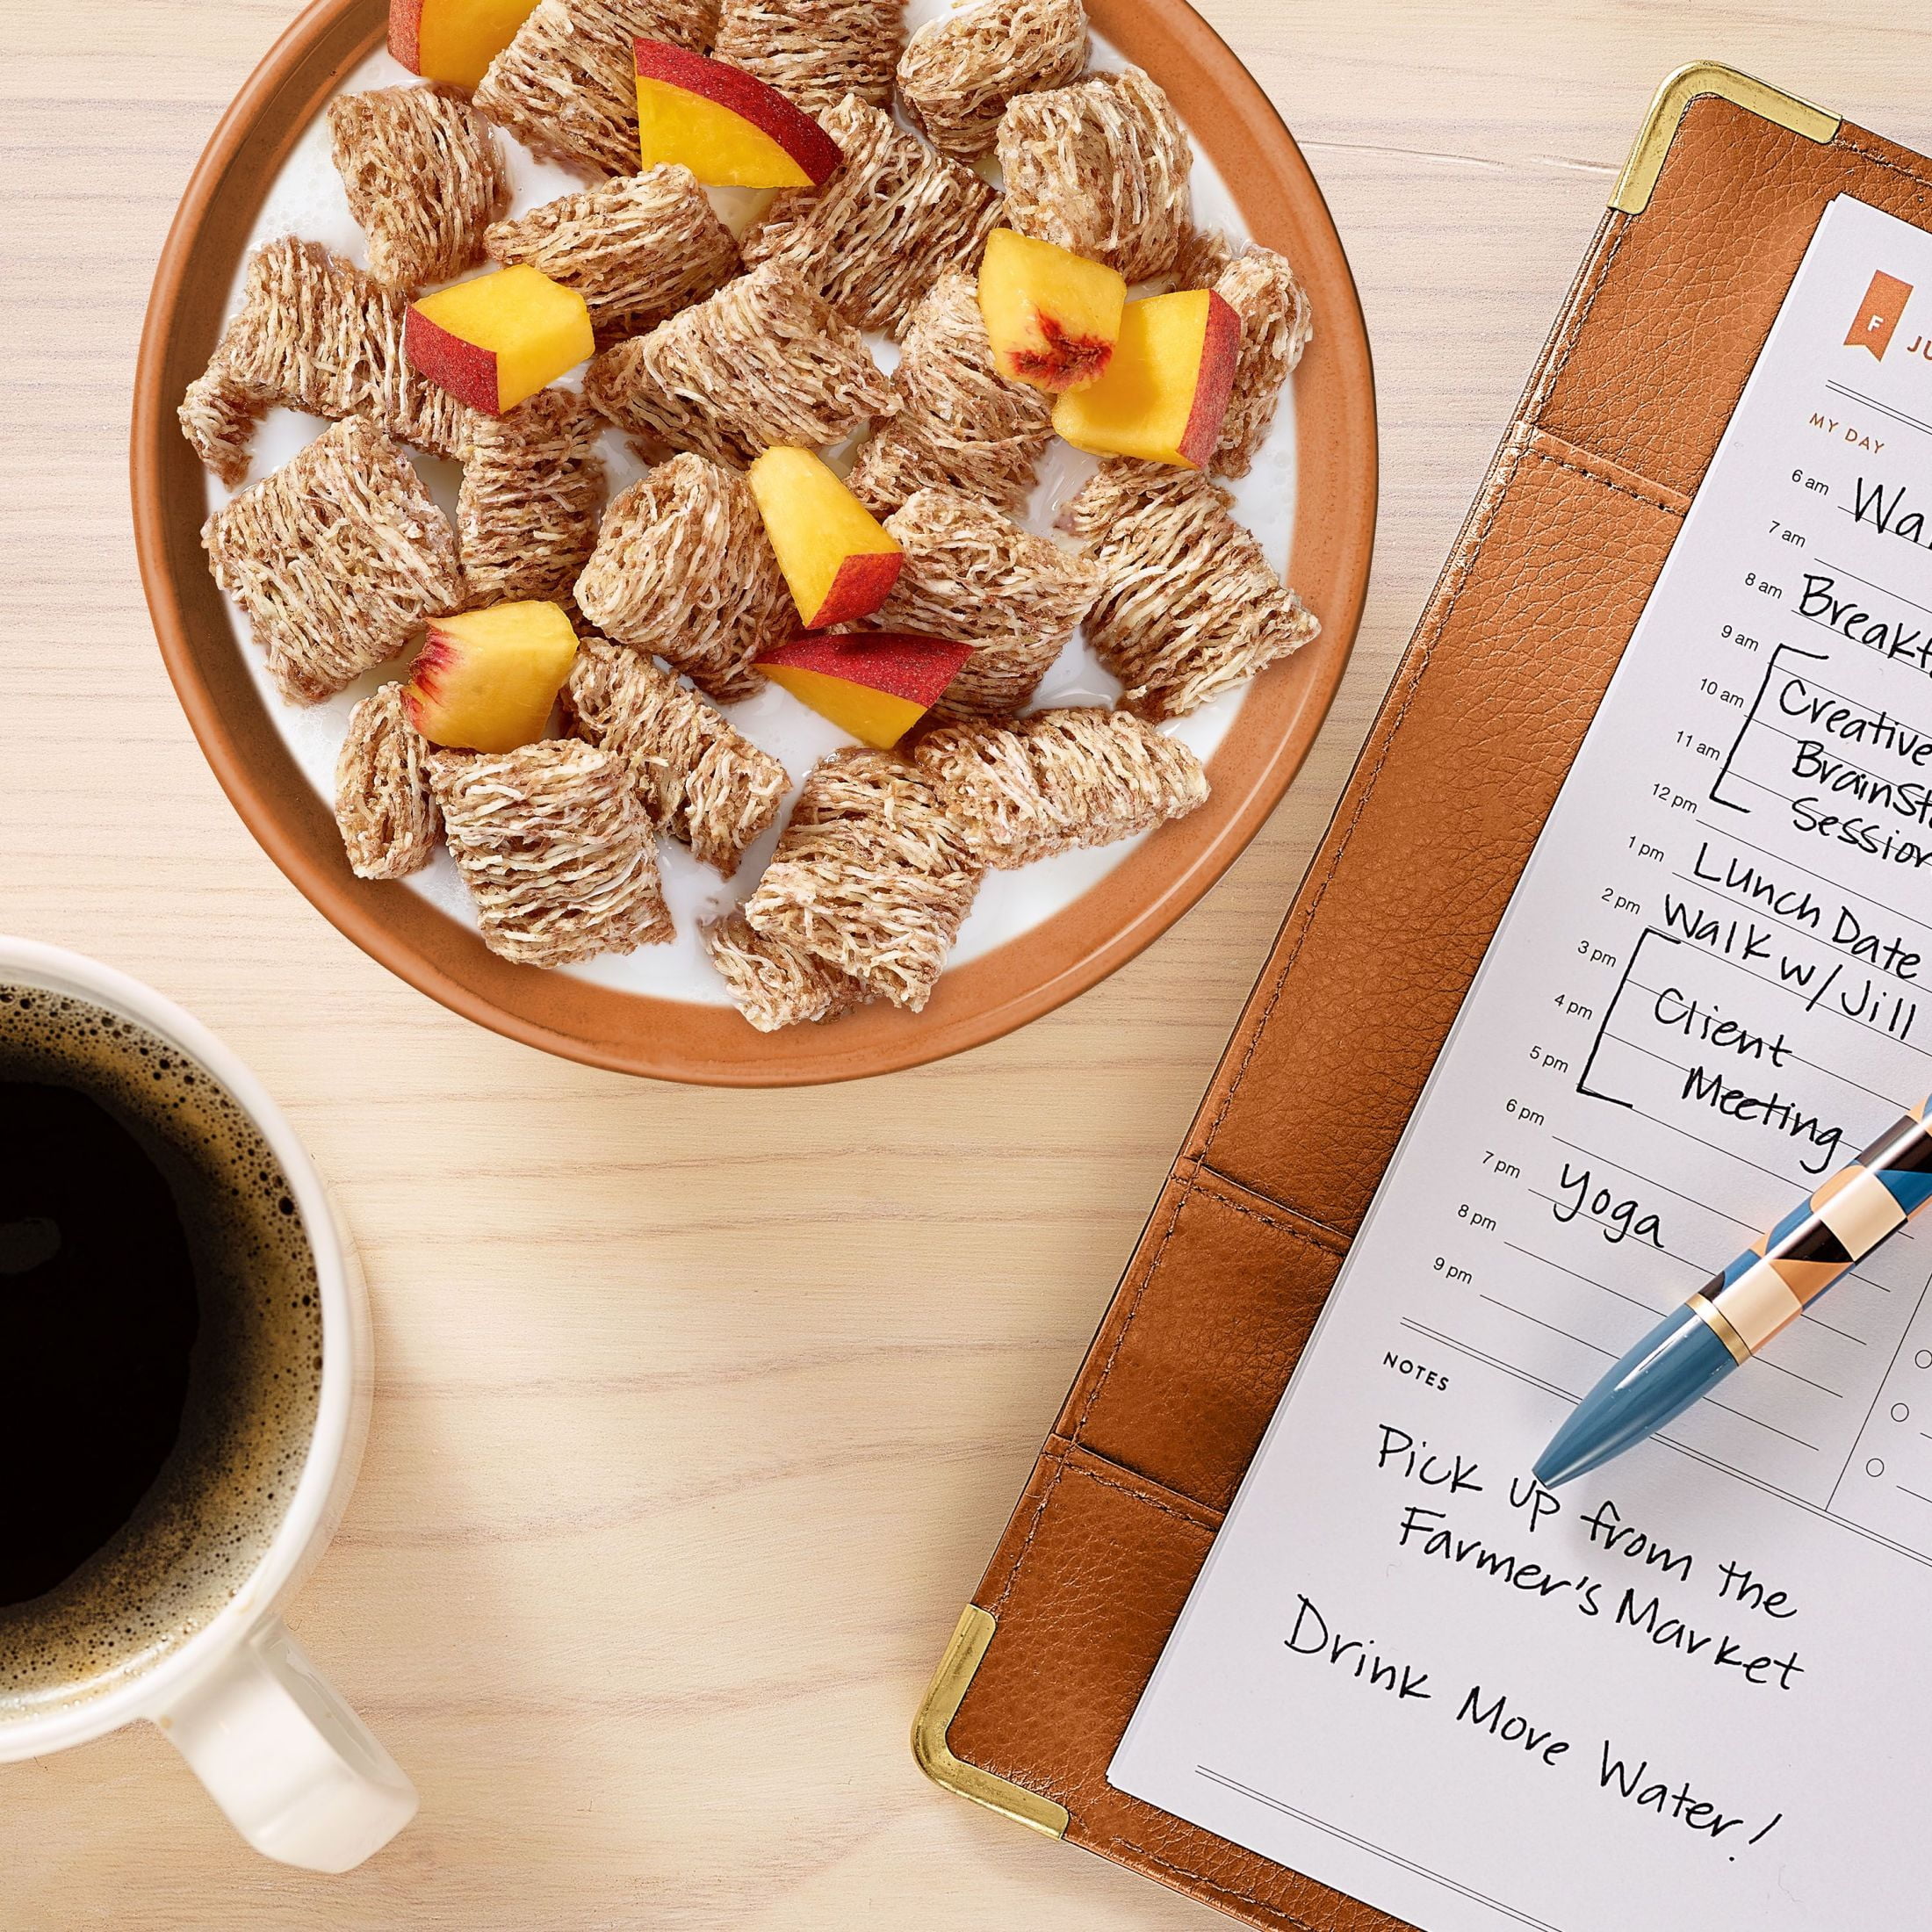 F
MY DAY
6 am
7 am
8 am
9 am
10 am Creative
11 am
Session
12 pm
1 pm Lunch Date
2 pm Walk w/Jill
3 pm
4 pm Client
5 pm Meeting
6 pm
7 pm Yoga
8 pm
9 pm
NOTES
Pick up from the
Farmer's Market
Drink Move Water!